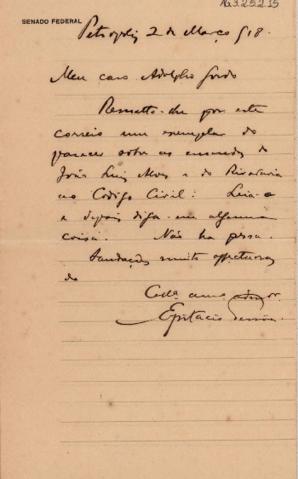 AG3.2.5.2.15
SENADO FEDERAL
Petropolis 2 de Março 918.
Meu caro Adolpho Gordo
Remetto-lhe por este
correio um exemplar do
parecer sobre as emendas de
João Luiz Alves e do Rivadavia
ao Codigo Civil: Leia-o
e depois diga-me alguma
coisa. Não ha pressa.
Saudações muito affectuosas
do
Coll. amo
Epitacio Pessôa